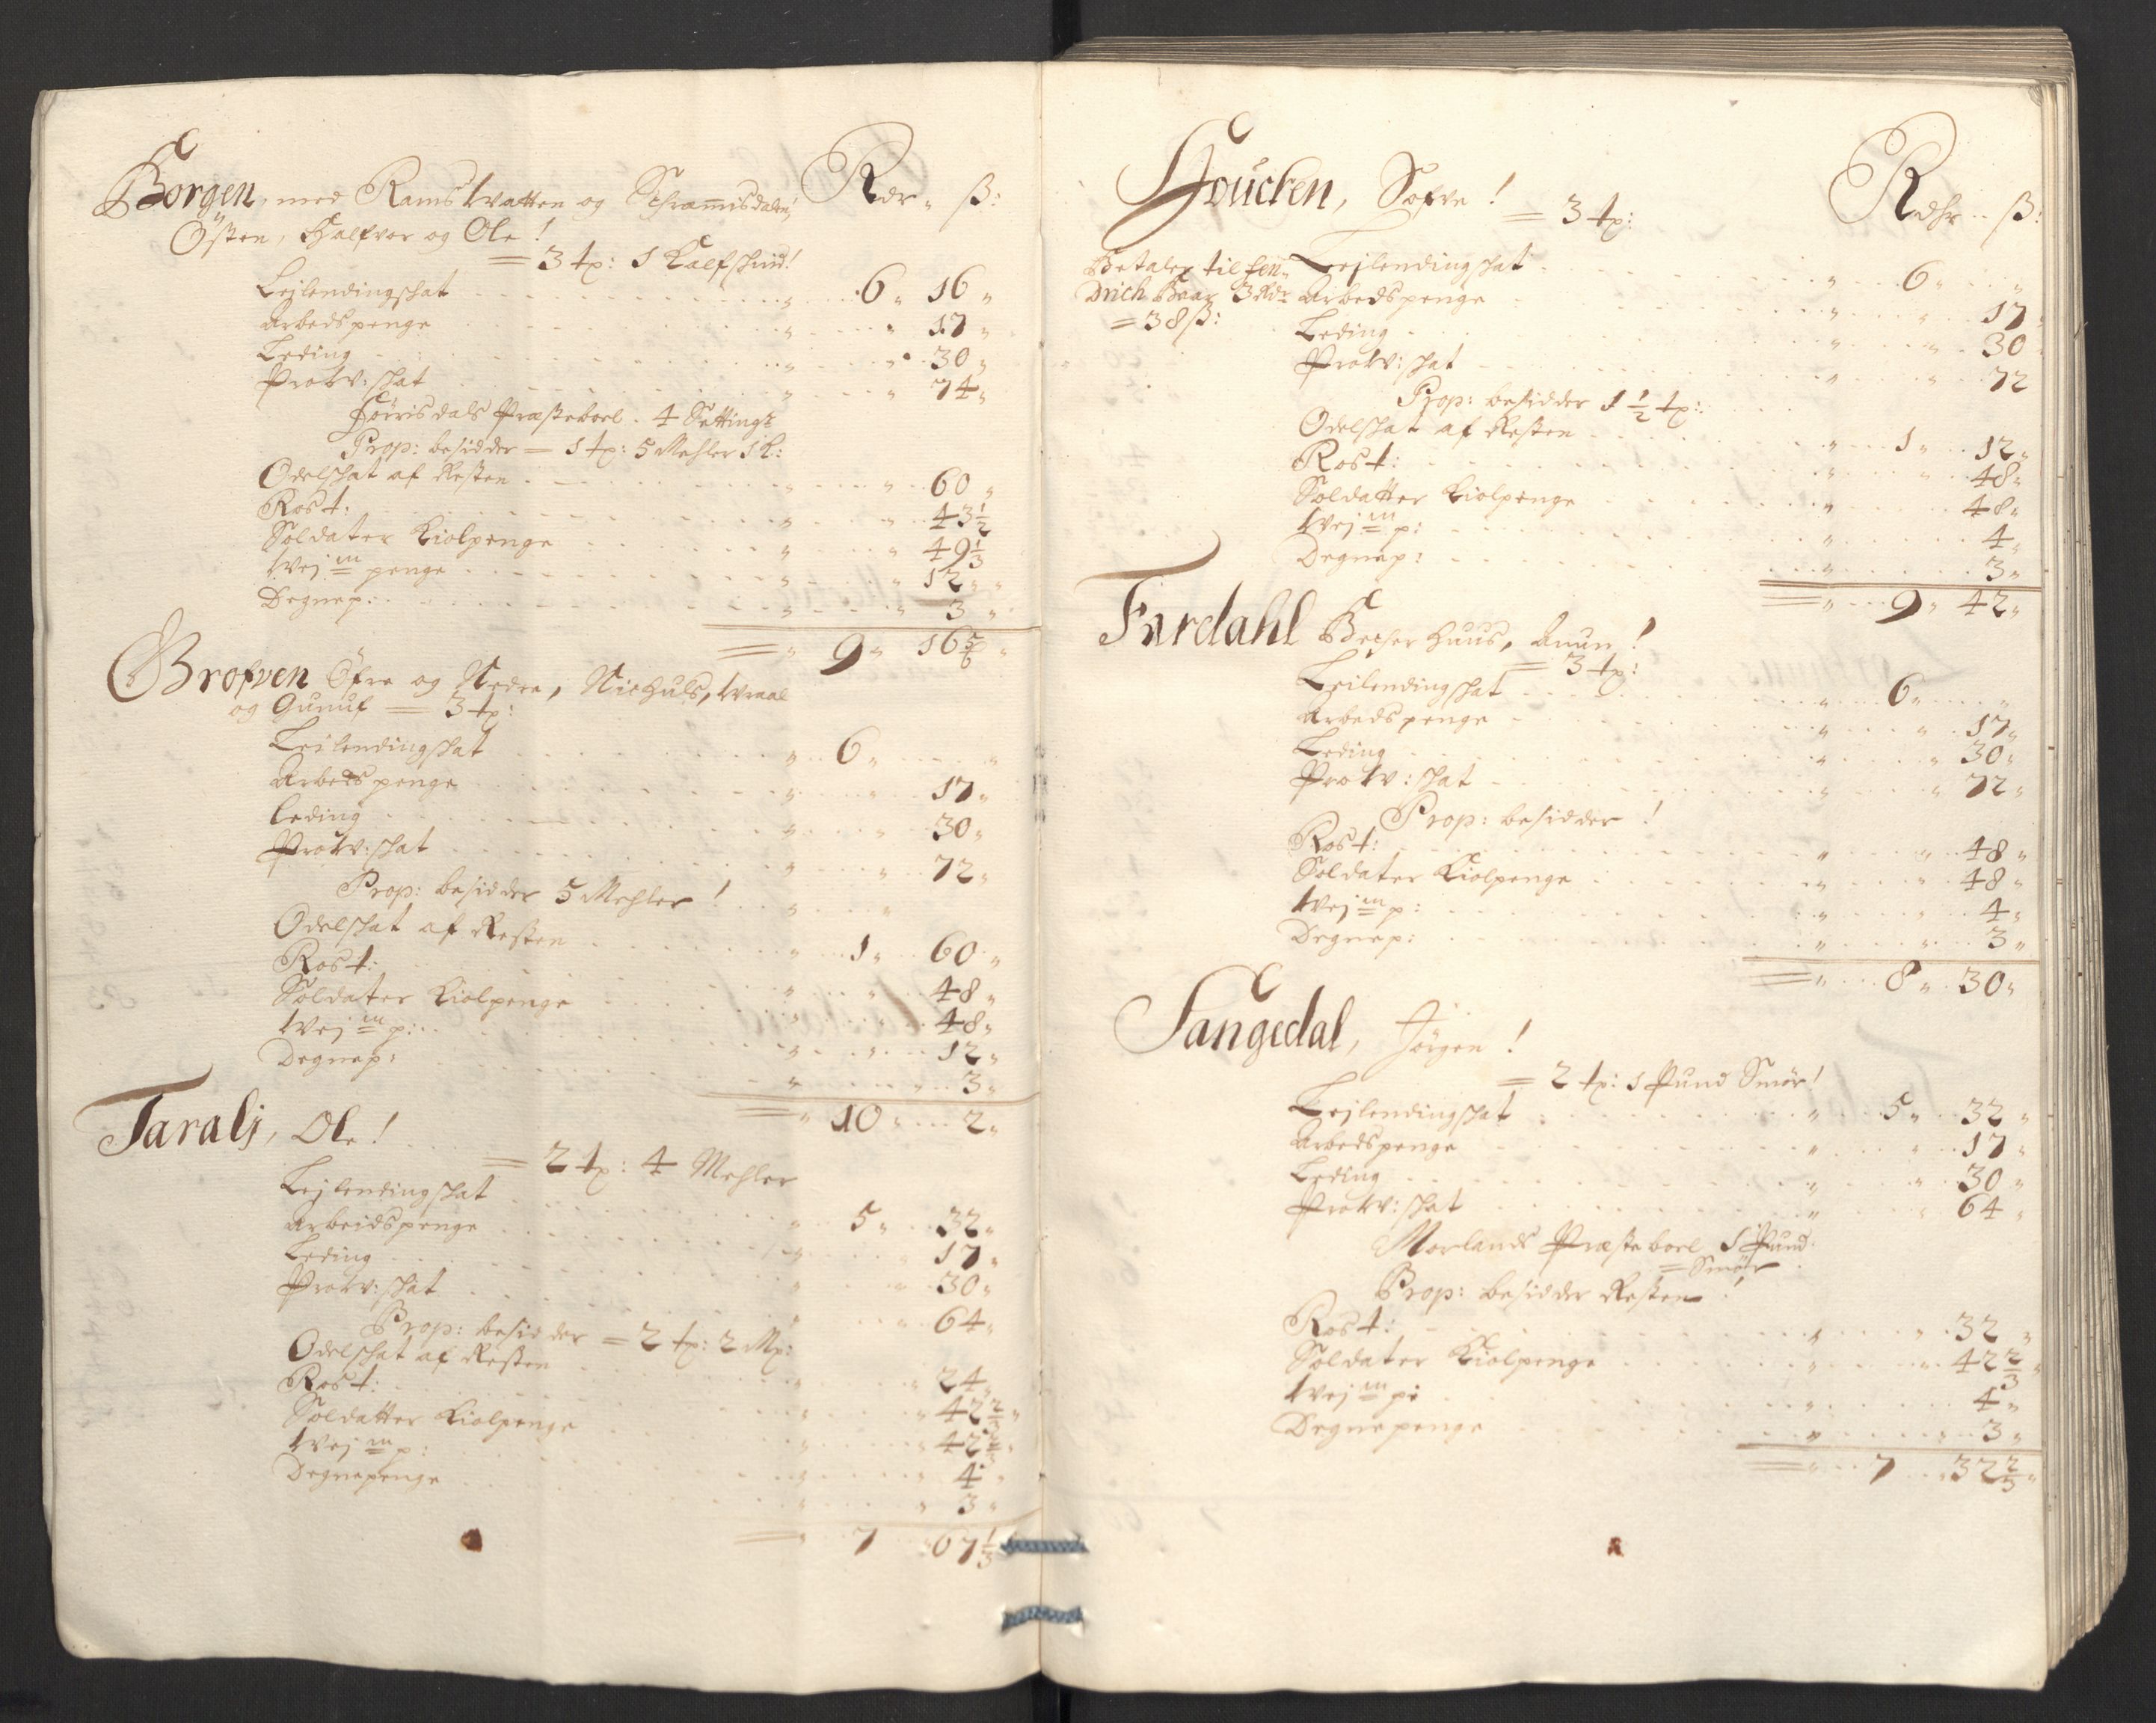 Borgen, med Ramskvatten og Schramisdalen, Rdr „ ß:
Østen, Halfvor og Ole !
= 3 tp: 1 Kalfskind!
Lejlendingschat „ 6 „ 16 „
Arbedspenge „ „ 17 „
Leding „ „ 30 „
Prow: schat „ „ 74 „
Hörrisdals Præsteboel . 4 Setting
Prop: besidder = 1 tp: 5 Mehler 1 K:
Odelschat af Resten „ „ 60 „
Rost: „ „ 43 1/2
Soldater Kiolpenge „ „ 49 1/3
Wej m penge „ „ 12 „
Degnep: „ „ 3 „
= „ 9 „ 16 5/6 „
Grofven Öfre og Nedre, Nichuls, Wraal
og Gunuf = 3 tp:
Leilendingschat „ 6 „ „
Arbedspenge „ „ 17 „
Leding „ „ 30 „
Prow: schat „ „ 72 „
Prop: besidder 5 Mehler ! „ „
Odelschat af Resten „ 1 „ 60 „
Rost: „ „ 48 „
Soldater Kiolpenge „ „ 48 „
Wej m p: „ „ 12 „
Degnep: „ „ 3 „
= „ 10 „ 2 „
Taralj, Ole !
= 2 tp: 4 Mehler
Lejlendingschat „ 5 „ 32 „
Arbeidspenge „ „ 17 „
Leding „ „ 30 „
Prow: schat „ „ 64 „
Prop: besidder = 2 tp: 2 Mp:
Odelschat af Resten „ „ 24 „
Rost: „ „ 42 2/3 „
Soldatter Kiolpenge „ „ 42 2/3 „
Wej m p: „ „ 4 „
Degnepenge „ „ 3 „
= „ 7 „ 67 1/3
Houchen, Sofre ! Rdhr „ ß:
= 3 tp:
Betaler til Hen-
drich Baar 3 Rdr
= 38 ß:
Lejlendingschat „ 6 „ „
Arbedspenge „ „ 17 „
Leding „ „ 30
Prow: schat „ „ 72
Prop: besidder 1 1/2 tp:
Odelschat af Resten „ 1 „ 12 „
Rost: „ „ 48 „
Soldatter Kiolpenge „ 48 „
Wej m p: „ 4 „
Degnep: „ 3 „
= „ 9 „ 42 „
Fardahl Becher Huus, Anun !
= 3 tp:
Leilendingschat „ 6 „ „
Arbedspenge „ „ 17 „
Leding „ „ 30 „
Prow: schat „ „ 72 „
Prop: besidder !
Rost: „ „ 48 „
Soldater Kiolpenge „ „ 48 „
Wej m p: „ „ 4 „
Degnep: „ „ 3 „
= „ 8 „ 30 „
Sangedal, Jörgen !
= 2 tp: 1 Pund Smör !
Lejlendingschat „ 5 „ 32 „
Arbedspenge „ „ 17 „
Leding „ „ 30 „
Prow: schat „ „ 64 „
Morlands Præsteboel 1 Pund
= Smör
Prop: besidder Resten !
Rost: „ „ 32 „
Soldater Kiolpenge „ „ 42 2/3 „
Wej m p: „ 4 „
Degnepenge „ „ 3 „
= „ 7 „ 32 2/3 „